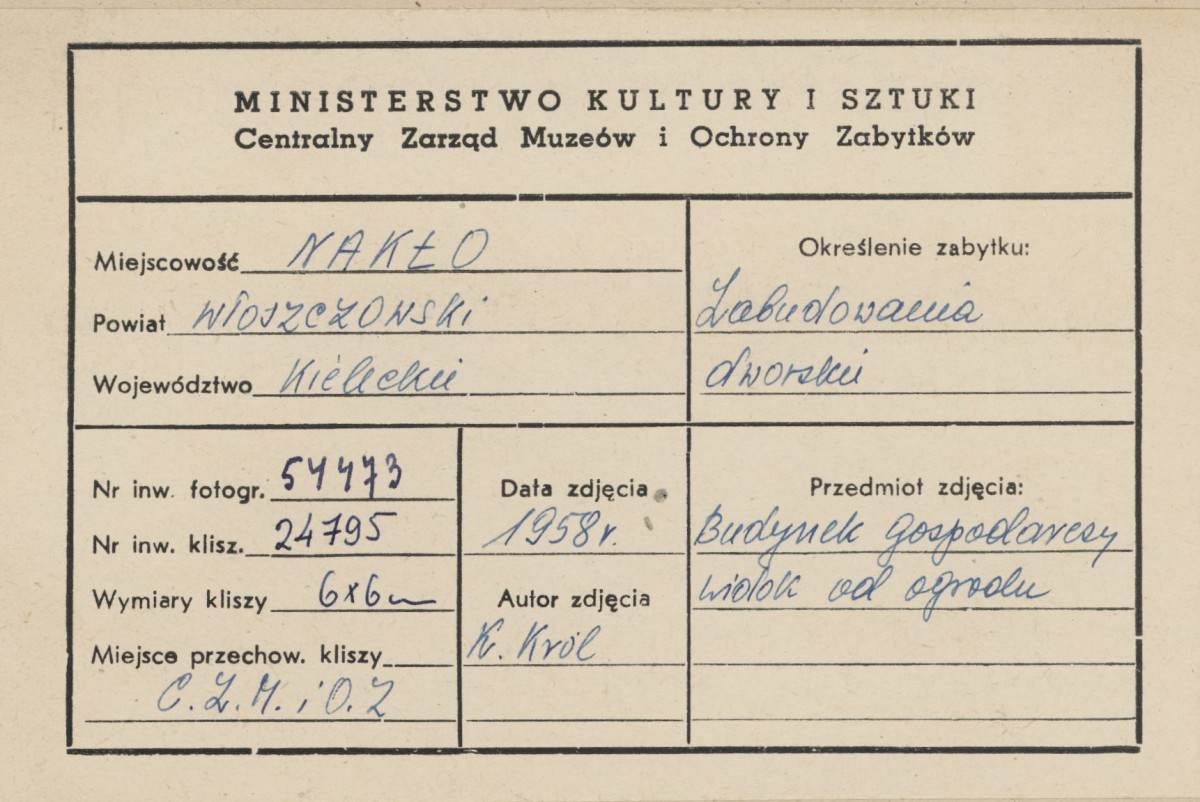 MINISTERSTWO KULTURY I SZTUKI
Centralny Zarząd Muzeów i Ochrony Zabytków
Miejscowość NAKŁO
Powiat Włoszczowski
Województwo Kieleckie
Określenie zabytku:
Zabudowania
dworskie
Nr inw. fotogr. 54473
Nr inw. klisz. 24795
Wymiary kliszy 6x6
Miejsce przechow. kliszy
C.Z.M. i O.Z
Data zdjęcia
1958r.
Autor zdjęcia
K. Król
Przedmiot zdjęcia:
Budynek gospodarczy
widok od ogrodu